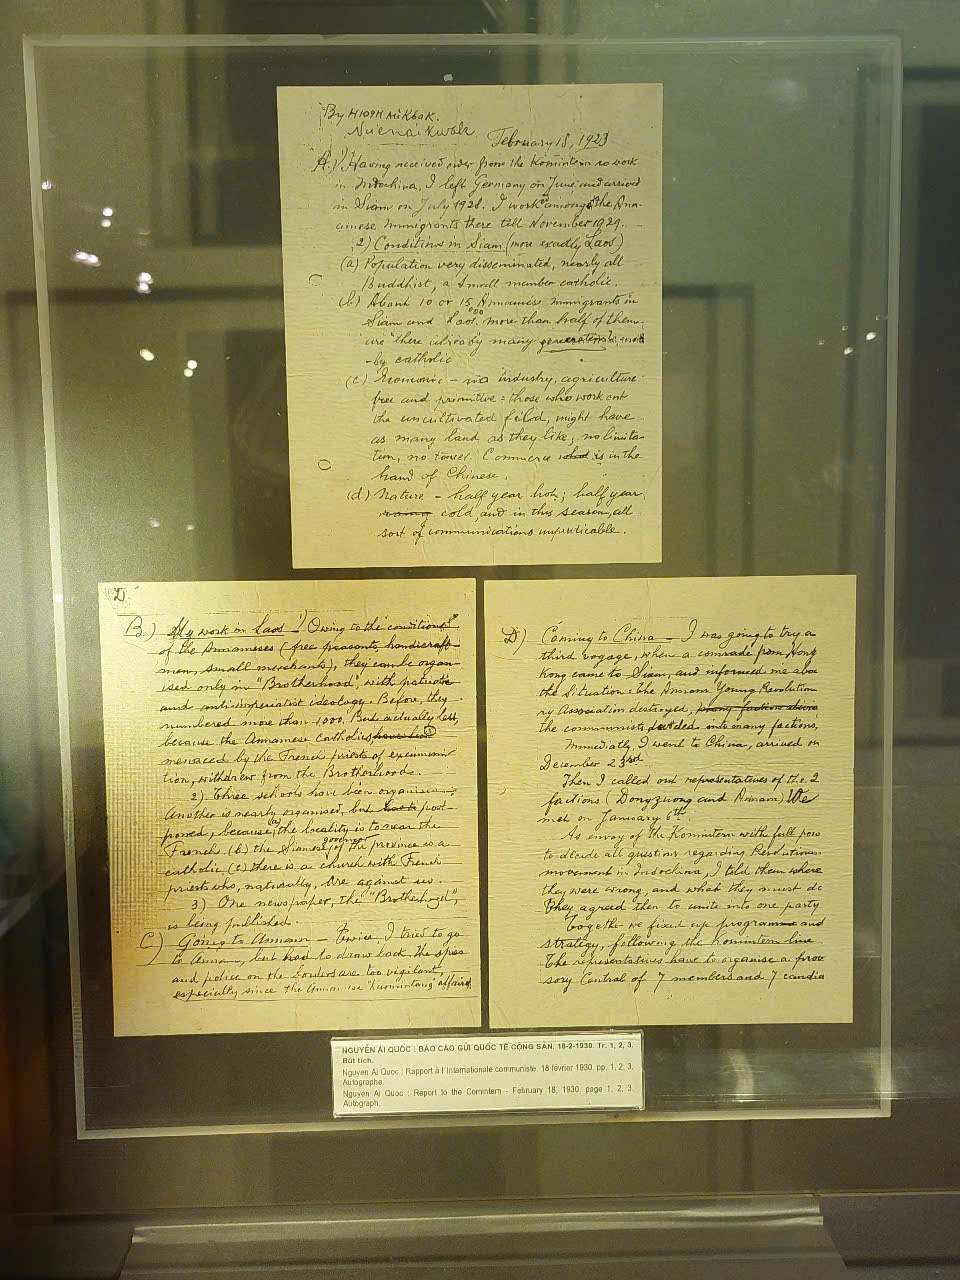 By
February 18, 1923
A.) 1) Having received order from the Komintern to work
in Indochina, I left Germany on June and arrived
in Siam on July 1928. I work amongst the Ana-
amese immigrants there till November 1929.
2) Conditions in Siam (more exactly Laos)
(a) Population very disseminated, nearly all
Buddhist, a small member catholic.
(b) About 10 or 15 000 Annamese immigrants in
Siam and Laos. more than half of them
are there by many
by catholic
(c) Economic - no industry, agriculture
free and primitive = those who work out
the uncultivated feild, might have
as many land as they like, no limita-
tion, no taxes. Commerce is in the
hand of Chinese.
(d) Nature - half year hot; half year
cold, and in this season, all
sort of communications impraticable.
2.
B) My work in Laos 1) Owing to the conditions
of the Annameses (free peasants, handicraft-
men, small merchants), they can be organ-
ised only in "Brotherhood", with patriotic
and anti-imperialist ideology. Before, they
numbered more than 1,000. But actually less,
because the Annamese Catholics
menaced by the French priests of excommuni-
tion, withdrew from the Brotherhoode.
2) Three schools have been organised;
Another is nearly organised, but post-
poned, because, (a) the locality is to near the
French. (b) the Siamese governor of the province is a
catholic, (c) there is a church with French
priests who, naturally, are against us.
3) One newspaper, the "Brotherhood",
is being published.
C) Going to Annam - Twice, I tried to go
to Annam, but had to draw back. The spies
and police on the borders are too vigilant,
especially since the Annamese "Kuomintang" affairs.
D) Coming to China - I was going to try a
third voyage, when a comrade from Hong
kong came to Siam, and informed me abou
the situation: the Annam Young Revolution
ry Association destroyed,
the communists divided into many factions,
Immediatly, I went to China, arrived on
December 23rd
Then I called out representatives of the 2
factions (Dongzuong and Annam) We
met on January 6th.
As envoy of the Komintern with full pow
to decide all questions regarding Revolution
movement in Indochina, I told them where
they were wrong, and what they must do
They agreed then to unite into one party
Together we fixed up programme and
strategy, following the Komintern line.
The representatives have to organise a provi
sory Central of 7 members and 7 candida
NGUYỄN ÁI QUỐC : BÁO CÁO GỬI QUỐC TẾ CỘNG SẢN. 18-2-1930. Tr. 1, 2, 3.
Bút tích.
Nguyen Ai Quoc : Rapport à l'Internationale communiste. 18 février 1930. pp. 1, 2, 3.
Autographe.
Nguyen Ai Quoc : Report to the Comintern - February 18, 1930. page 1, 2, 3.
Autograph.